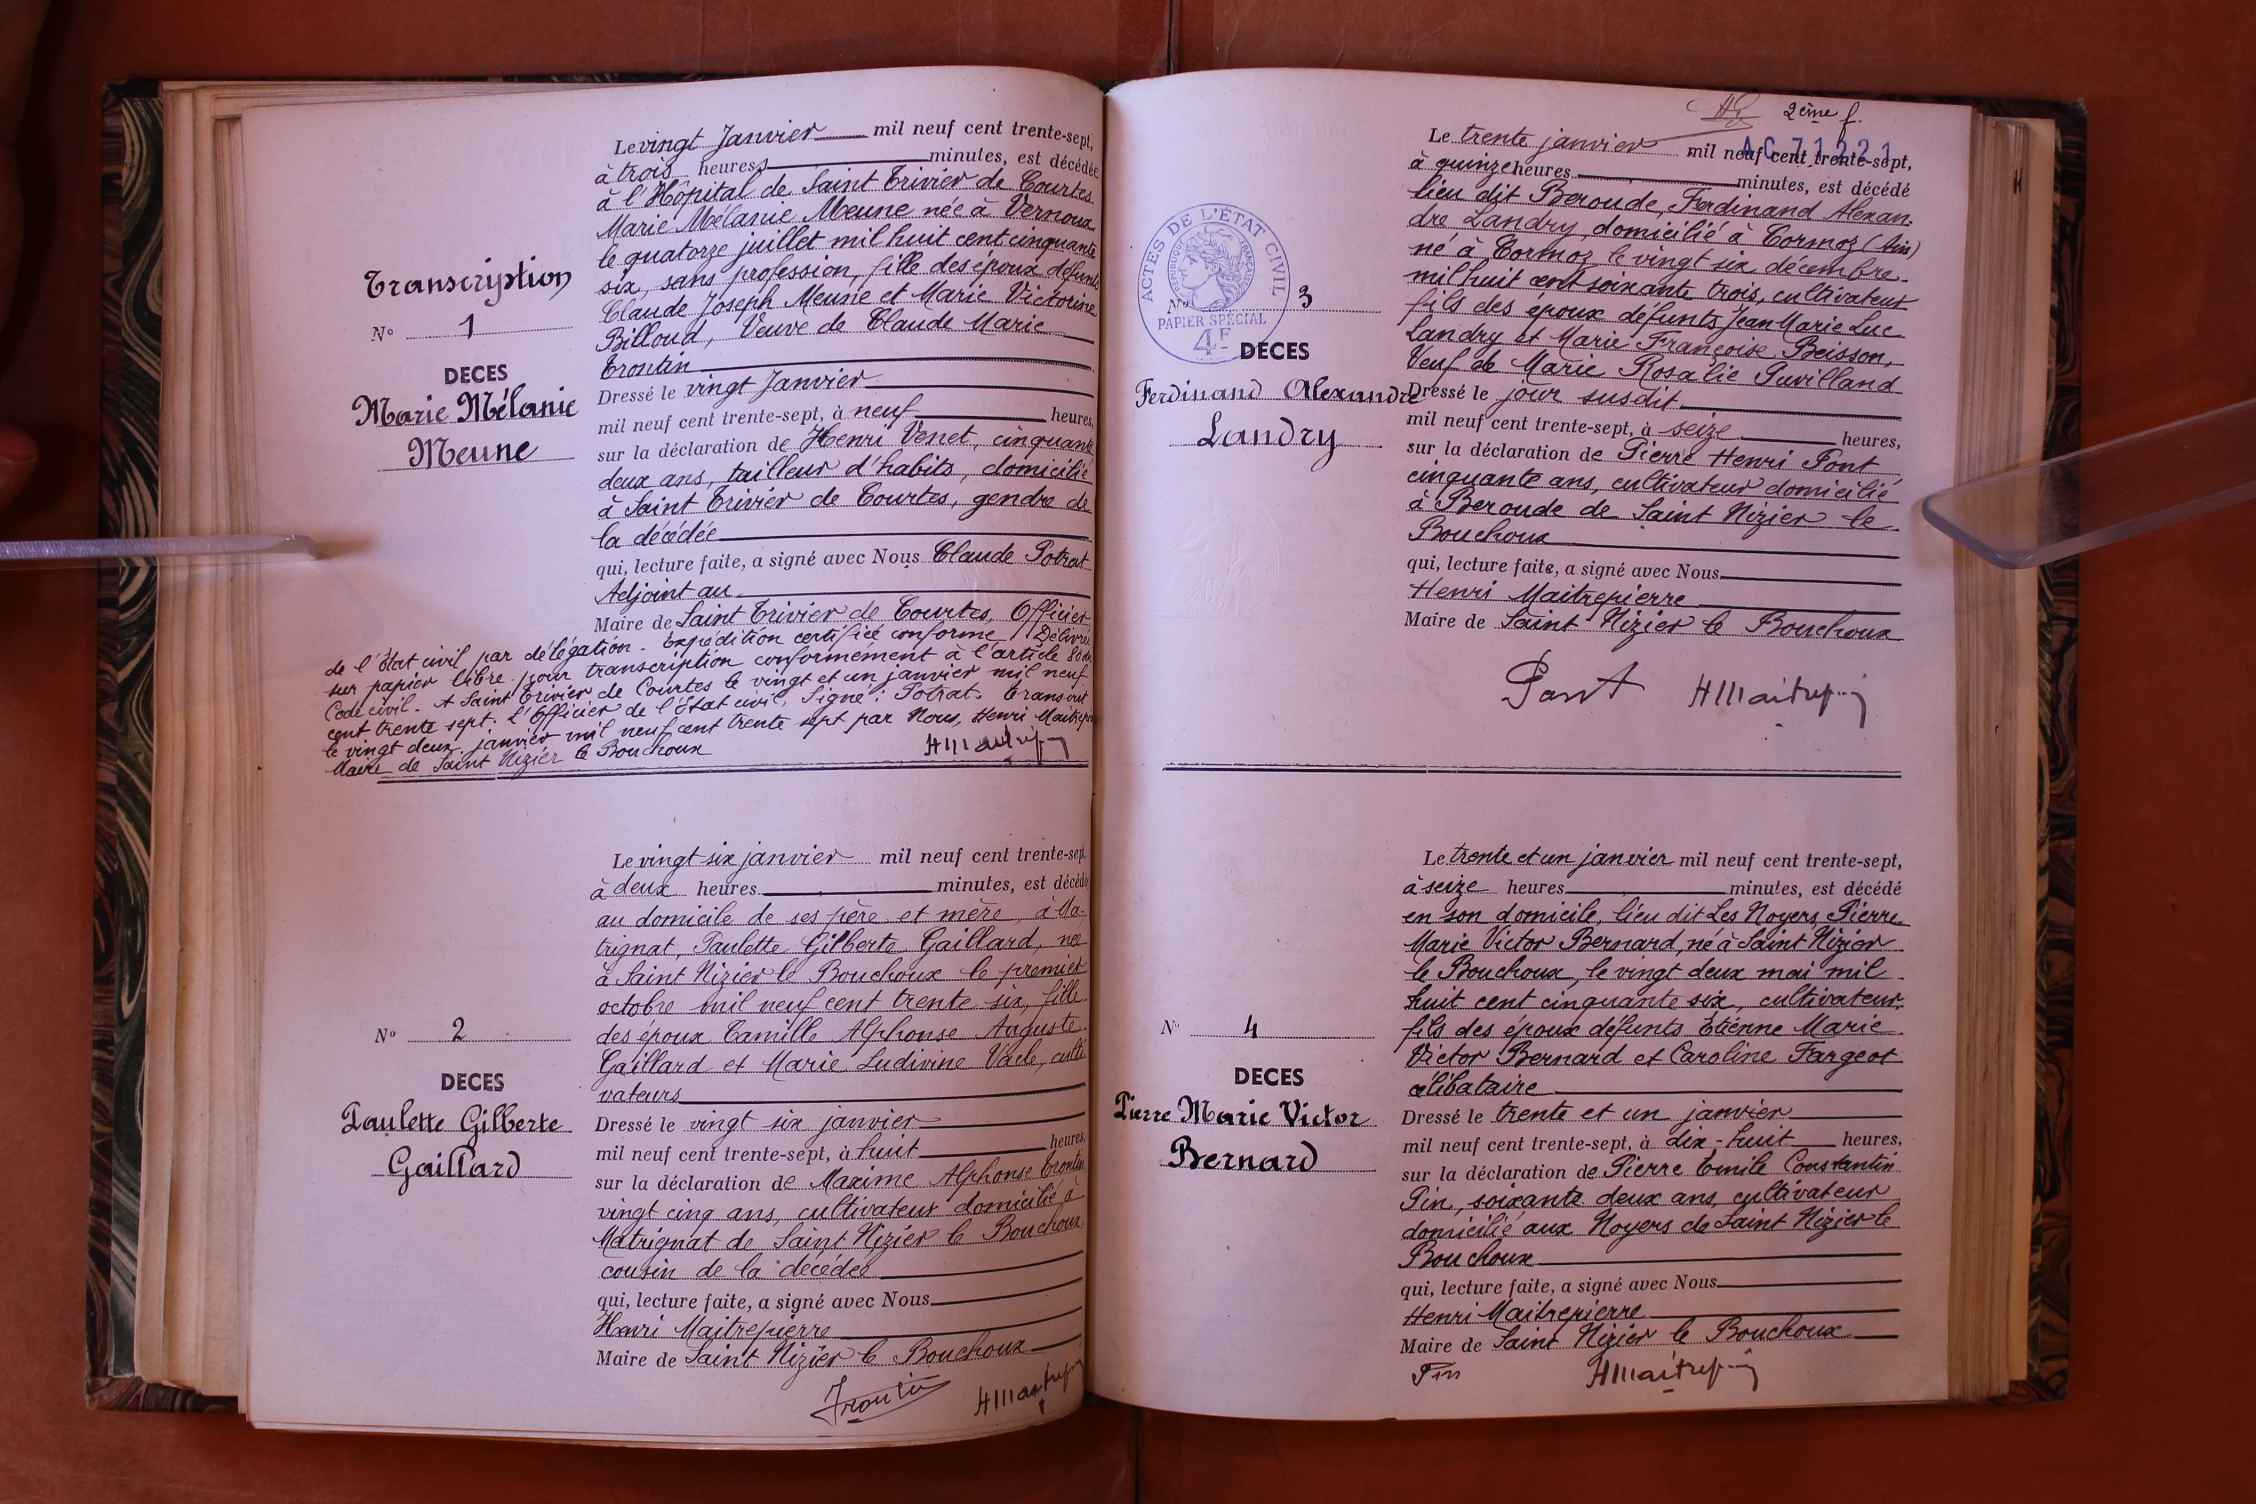 Transcription
Nº 1
DECES
Marie Mélanie
Meune
Le vingt Janvier mil neuf cent trente-sept,
à trois heures minutes, est décédée
à l'Hôpital de Saint Trivier de Courtes
Marie Mélanie Meune née à Vernoux
le quatorze juillet mil huit cent cinquante
six, sans profession, fille des époux défunts
Claude Joseph Meune et Marie Victorine
Billoud, Veuve de Claude Marie
Trontin
Dressé le vingt Janvier
mil neuf cent trente-sept, à neuf heures,
sur la déclaration de Henri Venet, cinquante
deux ans, tailleur d'habits, domicilié
à Saint Trivier de Courtes, gendre de
la décédée
qui, lecture faite, a signé avec Nous Claude Potrat
Adjoint au
Maire de Saint Trivier de Courtes, Officier
de l'Etat civil par délégation. Expédition certifiée conforme Délivrée
sur papier libre pour transcription conformément à l'article 80 du
Code civil. A Saint Trivier de Courtes le vingt et un janvier mil neuf
cent trente sept. L'Officier de l'Etat civil, Signé: Potrat. Transcrit
le vingt deux janvier mil neuf cent trente sept par Nous, Henri Maitrepierre
Maire de Saint Nizier le Bouchoux
HMaitrep
Nº 2
DECES
Paulette Gilberte
Gaillard
Le vingt six janvier mil neuf cent trente-sept
à deux heures minutes, est décédée
au domicile de ses père et mère, à Ma-
trignat, Paulette Gilberte Gaillard, née
à Saint Nizier le Bouchoux le premier
octobre mil neuf cent trente-six, fille
des époux Camille Alphonse Auguste
Gaillard et Marie Ludivine Vacle, culti
vateurs
Dressé le vingt six janvier
mil neuf cent trente-sept, à huit heures,
sur la déclaration de Maxime Alphonse Trontin
vingt cinq ans, cultivateur domicilié à
Matrignat de Saint Nizier le Bouchoux,
cousin de la décédée
qui, lecture faite, a signé avec Nous
Henri Maitrepierre
Maire de Saint Nizier le Bouchoux
Trontin HMaitrep
2ème f.
AC 71221
ACTES DE L'ÉTAT CIVIL
RÉPUBLIQUE FRANÇAISE
PAPIER SPÉCIAL
4F
Nº 3
DECES
Ferdinand Alexandre
Landry
Le trente janvier mil neuf cent trente-sept,
à quinze heures minutes, est décédé
lieu dit Beroude, Ferdinand Alexan-
dre Landry, domicilié à Cormoz (Ain)
né à Cormoz le vingt six décembre
mil huit cent soixante trois, cultivateur
fils des époux défunts Jean Marie Luc
Landry et Marie Françoise Beisson,
Veuf de Marie Rosalie Puvilland
Dressé le jour susdit
mil neuf cent trente-sept, à seize heures,
sur la déclaration de Pierre Henri Pont
cinquante ans, cultivateur domicilié
à Beroude de Saint Nizier le
Bouchoux
qui, lecture faite, a signé avec Nous
Henri Maitrepierre
Maire de Saint Nizier le Bouchoux
Pont HMaitrep
Nº 4
DECES
Pierre Marie Victor
Bernard
Le trente et un janvier mil neuf cent trente-sept,
à seize heures minutes, est décédé
en son domicile, lieu dit Les Noyers, Pierre
Marie Victor Bernard, né à Saint Nizier
le Bouchoux, le vingt deux mai mil
huit cent cinquante six, cultivateur,
fils des époux défunts Etienne Marie
Victor Bernard et Caroline Fargeot
célibataire
Dressé le trente et un janvier
mil neuf cent trente-sept, à dix-huit heures,
sur la déclaration de Pierre Emile Constantin
Pin, soixante deux ans, cultivateur
domicilié aux Noyers de Saint Nizier le
Bouchoux
qui, lecture faite, a signé avec Nous
Henri Maitrepierre
Maire de Saint Nizier le Bouchoux
Pin HMaitrep